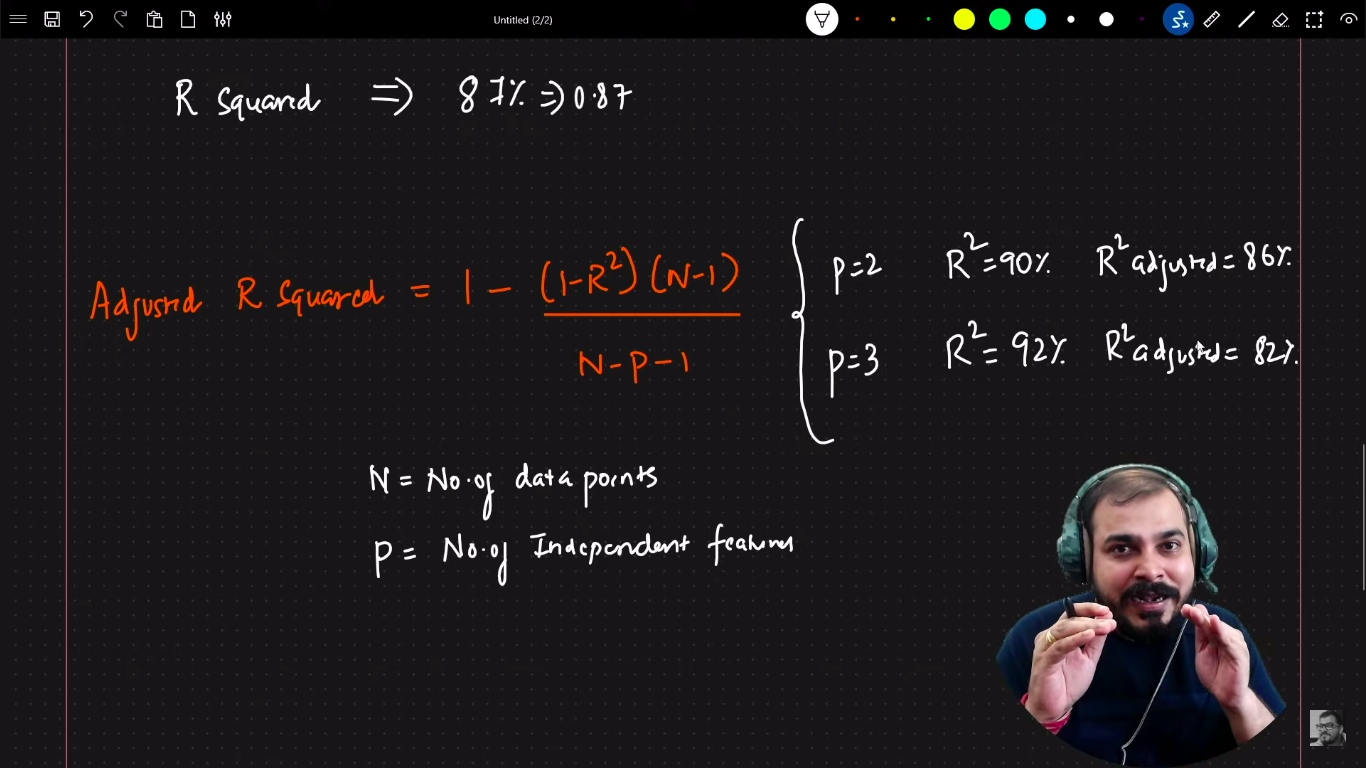 Untitled (2/2)
R Squared ⇒ 87% ⇒ 0.87
Adjusted R Squared = 1 - (1-R²) (N-1)
N-P-1
P=2 R²=90% R² adjusted = 86%
P=3 R² = 92% R² adjusted = 82%
N = No. of data points
P = No. of Independent features